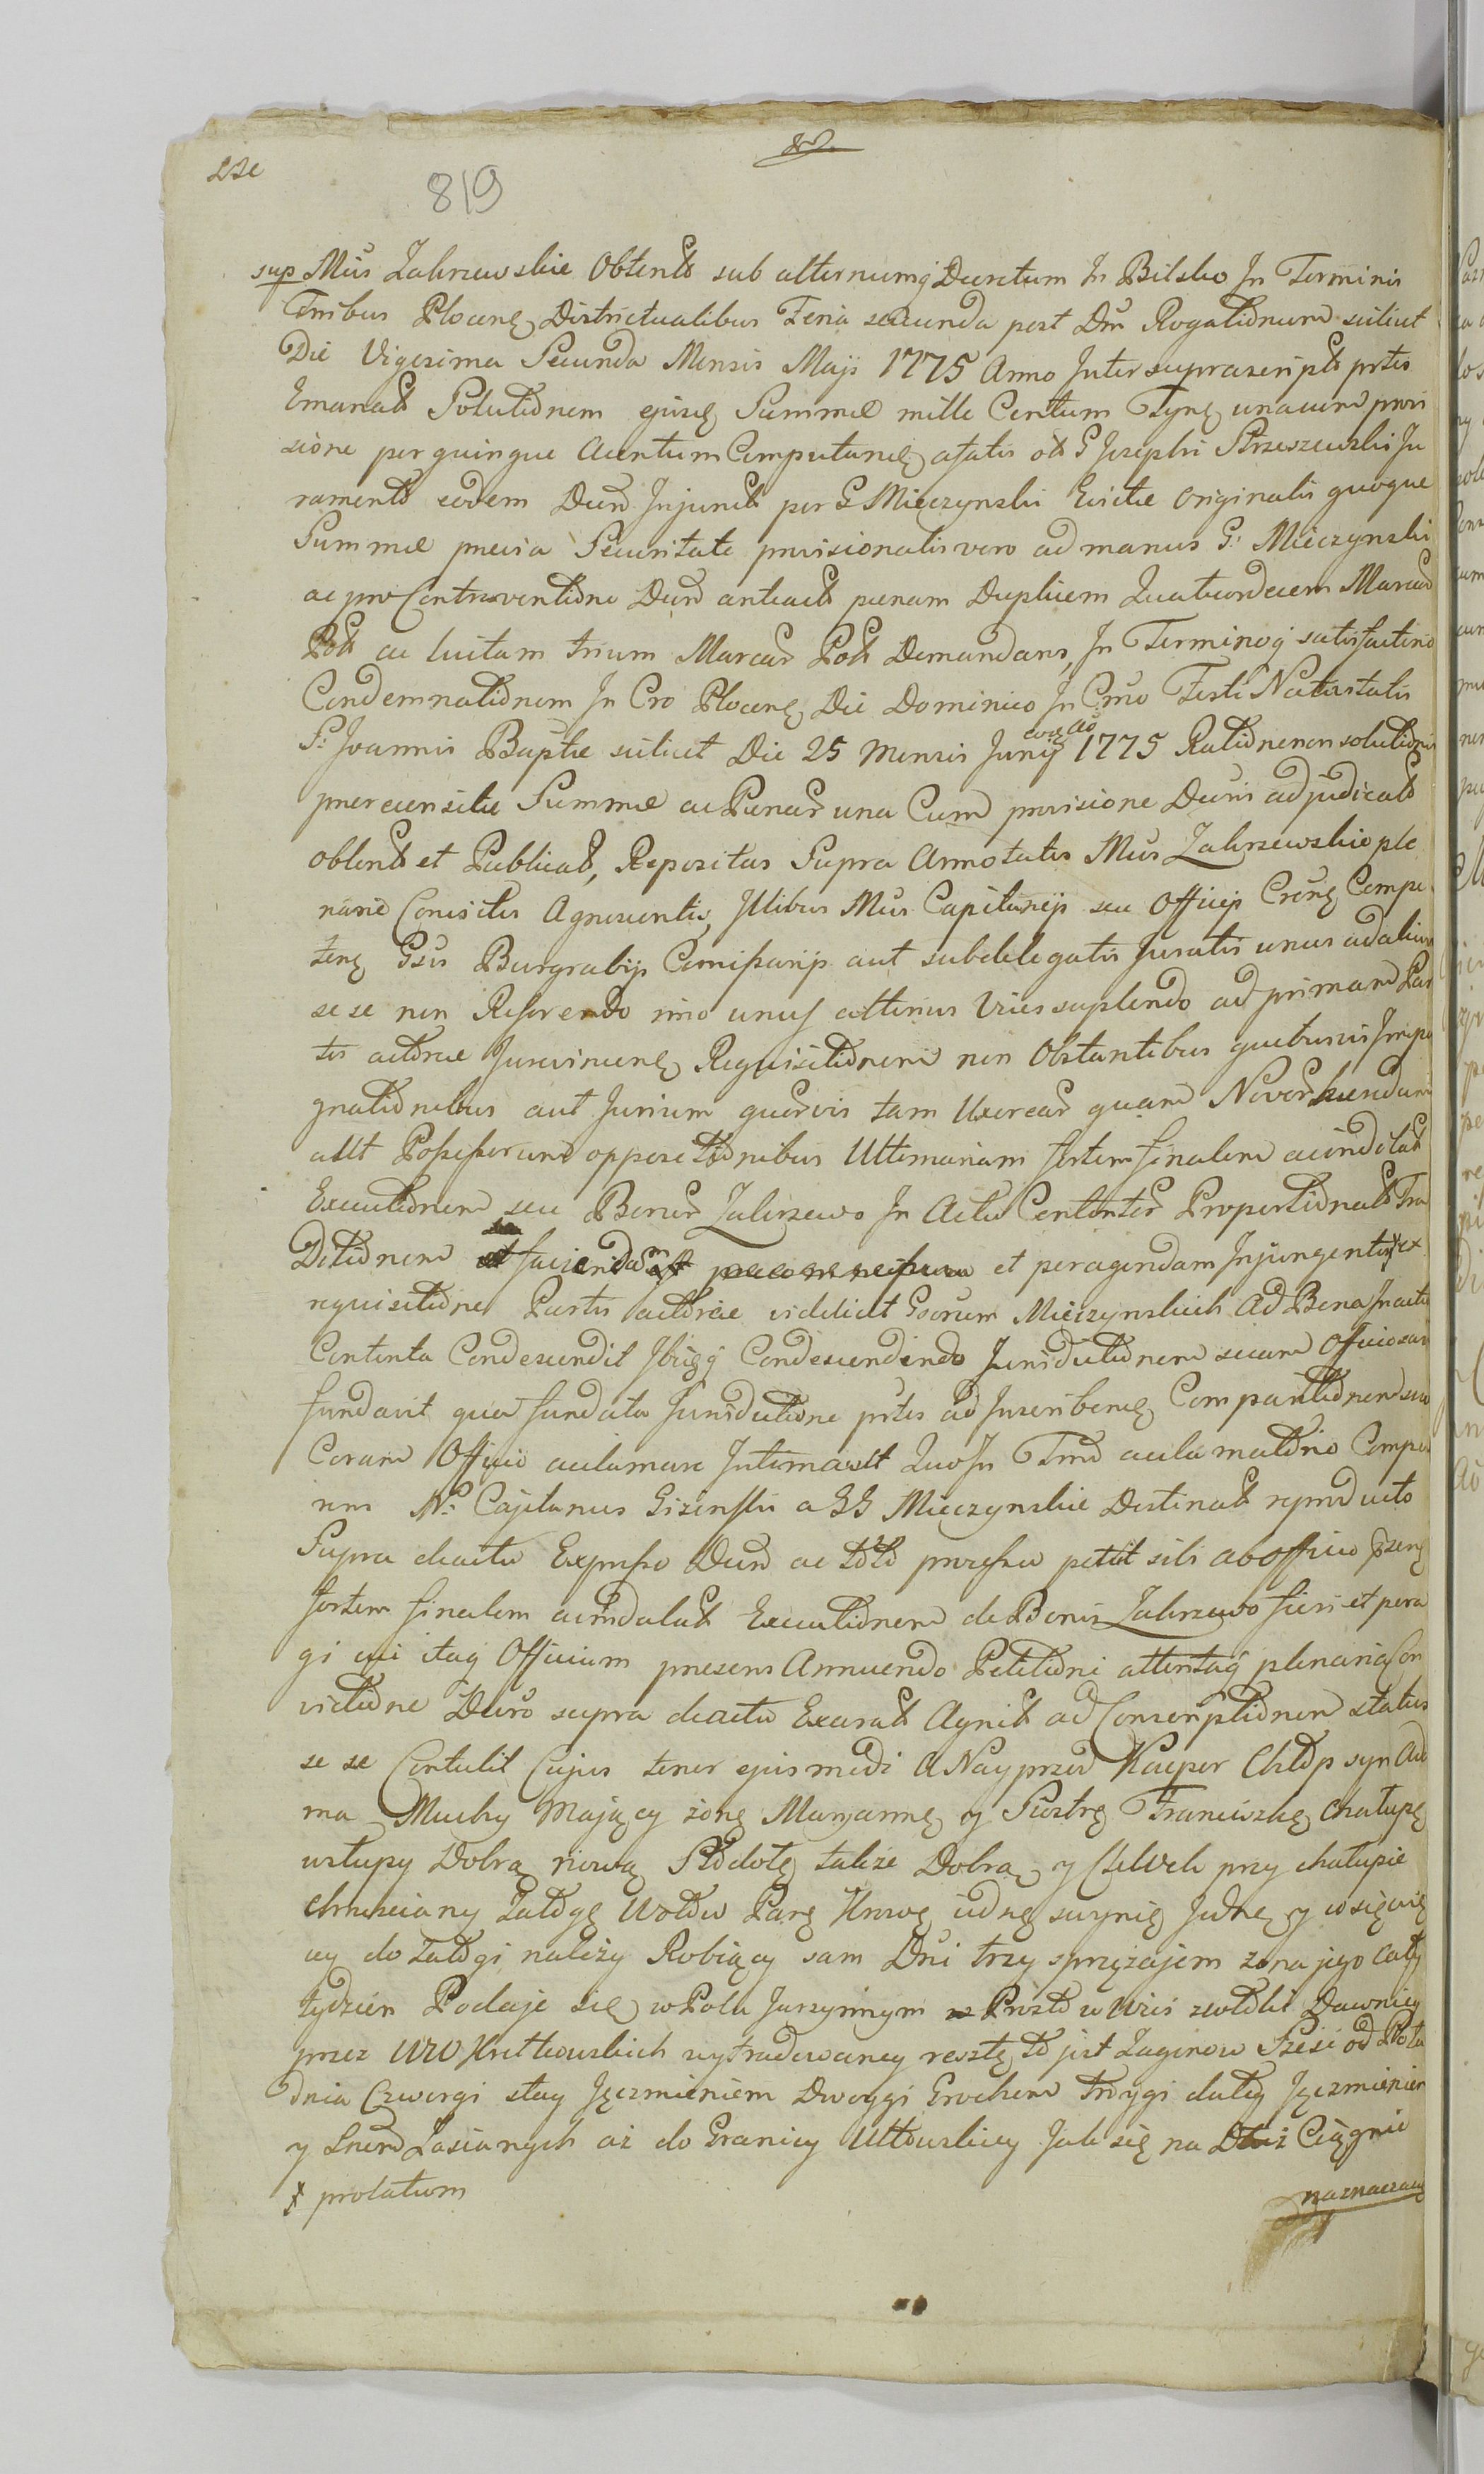 819
sup Mus Zakrzewskie Obtent sub alternumq Decretum In Bilsko In Terminis
Tribus Plocens Districtualibus Feria secunda post Dnm Rogationum scilicet
Die Vigesima Secunda Mensis Maji 1775 Anno Inter suprascript prtes
Emanat Solutionem ejusd Summae mille Centum Tynf unacum provi
sione per quinque a Centum Computand a statis ob G Josephi Strzeszewski Ju
rament eodem Decr Injunct per G Mieczynski Evictae originalis quoque
Summae praevia Securitate provisionalis vero ad manus G: Mieczynski
ac pro Contraventione Decr anteact paenam Duplicem Quatuordecem Marcar
Pol ac luitam trium Marcar Pol Demandans, In Terminoq satisfactionis
Condemnationem In Cro Plocens Die Dominico In Crno Festi Nativitatis
S: Joannis Baptae scilicet Die 25 Mensis Junij 1775 Ratione non solutionis
praerecensitae Summae ac Paenar una Cum provisione Decris adjudicat
obtent et Publicat, Repositus Supra Annotatis Mus Zakrzewskie ple
narie Convictis Agnoscentis, Illibus Mus Capitaneij seu Officij Crens Compe
tens Gsis Burgrabijs Comissarijs aut subdelegatis Juratis unus ad alium
se se non Referendo imo unus alterius Vices suplendo ad primam Par
tis actoreae Jurevincens Requisitionem non Obstantibus quibusvis Impu
gnationibus aut Jurium quorvis tam Uxorear quam
aut Possessorum oppositionibus Ultimariam fortem finalem
Executionem seu Bonor Zakrzewo In Actu Contentor Proportionat Tra
ditionem faciendam et peragendam Injungentis ex
requisitione Partis actoreae videlicet Gsorum Mieczynskich Ad Bona In actu
Contenta Condescendit Ibiq Condescendendo Jurisdictionem suam Officiosam
fundavit qua fundata Jurisdictione prtes ad Inscribend Comparitionem suam
Coram Officio acclamare Intimavit Quo In Trno acclamationis Compa
rens N: Cajetanus Gizinski a GG Mieczynskie Destinat reproducto
Supra de actu Expresso Decro ac toto processu petiit sibi ab officio prsens
fortem finalem Executionem de Bonis Zakrzewo fieri et pera
gi cui itaq Officium praesens Annuendo Petitioni attentaq plenaria Con
victione Decro supra de actu Exarat Agnit ad Conscriptionem status
se se Contulit Cujus tenor ejusmodi A Nayprzod Kacper Chłop syn Ada
ma Muchy Mający żonę Maryannę y Siostrę Franciszkę Chałupę
wstupy Dobrą nową Stodołę także Dobrą y Chlewek przy chałupie
Chruściany Załogę Wołów Parę Krowę iednę swynię Jednę y wsięwię
cy do załogi należy Robiący sam Dni trzy sprzężajem żona jego cały
tydzień Podaje się w Polu Jarzynnym Prosto w Wieś zwłoki Dawniey
przez WW Kretkowskich wytradowaney resztę to jest Zagonow Sześć od Płota
dnia Czworgi stay Jęczmieniem Dwoygi Grochem Troygi daley Jęczmieniem
y Lnem Zasianych aż do Granicy Ułtowskiey Jak się na Dłuż Ciągnie
x prolatum
naznaczaią